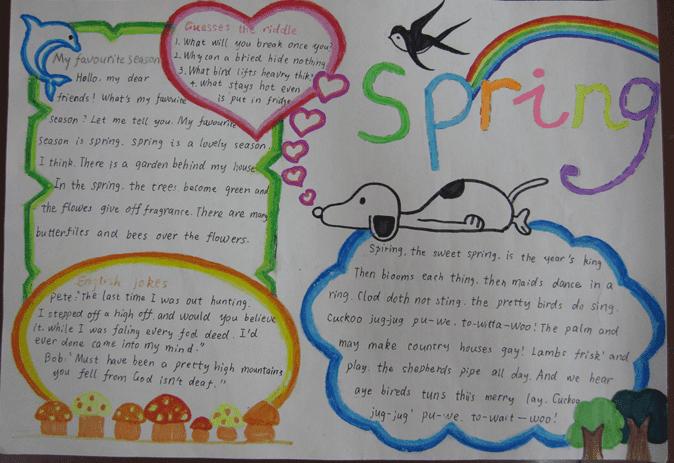 My favourite season
Hello, my dear
friends! What's my favourite
season? Let me tell you. My favourite
season is spring. spring is a lovely season.
I think. There is a garden behind my house
In the spring. the trees. become green and
the flowes give off fragrance. There are many
butterfiles and bees over the flowers.
Guesses the riddle
1. What will you break once you
2. Why can a bried hide nothing
3. What bird lifts heavry thik
4. what stays hot even
is put in fridge
Spring
English jokes
Pete: "The last time I was out hunting.
I stepped off a high off. and would you believe
it. while I was faling every fod deed. I'd
ever done came into my mind."
Bob: "Must have been a pretty high mountains
you fell from God isn't deaf."
Spiring, the sweet spring. is the year's king
Then blooms each thing. then maids dance in a
ring. Clod doth not sting. the pretty birds do sing.
Cuckoo jug-jug pu-we. to-witta-woo! The palm and
may make country houses gay! Lambs frisk' and
play. the shepherds pipe all day. And we hear
aye bireds tuns this merry lay. Cuckoo
jug-jug' pu-we. to-wait-woo!